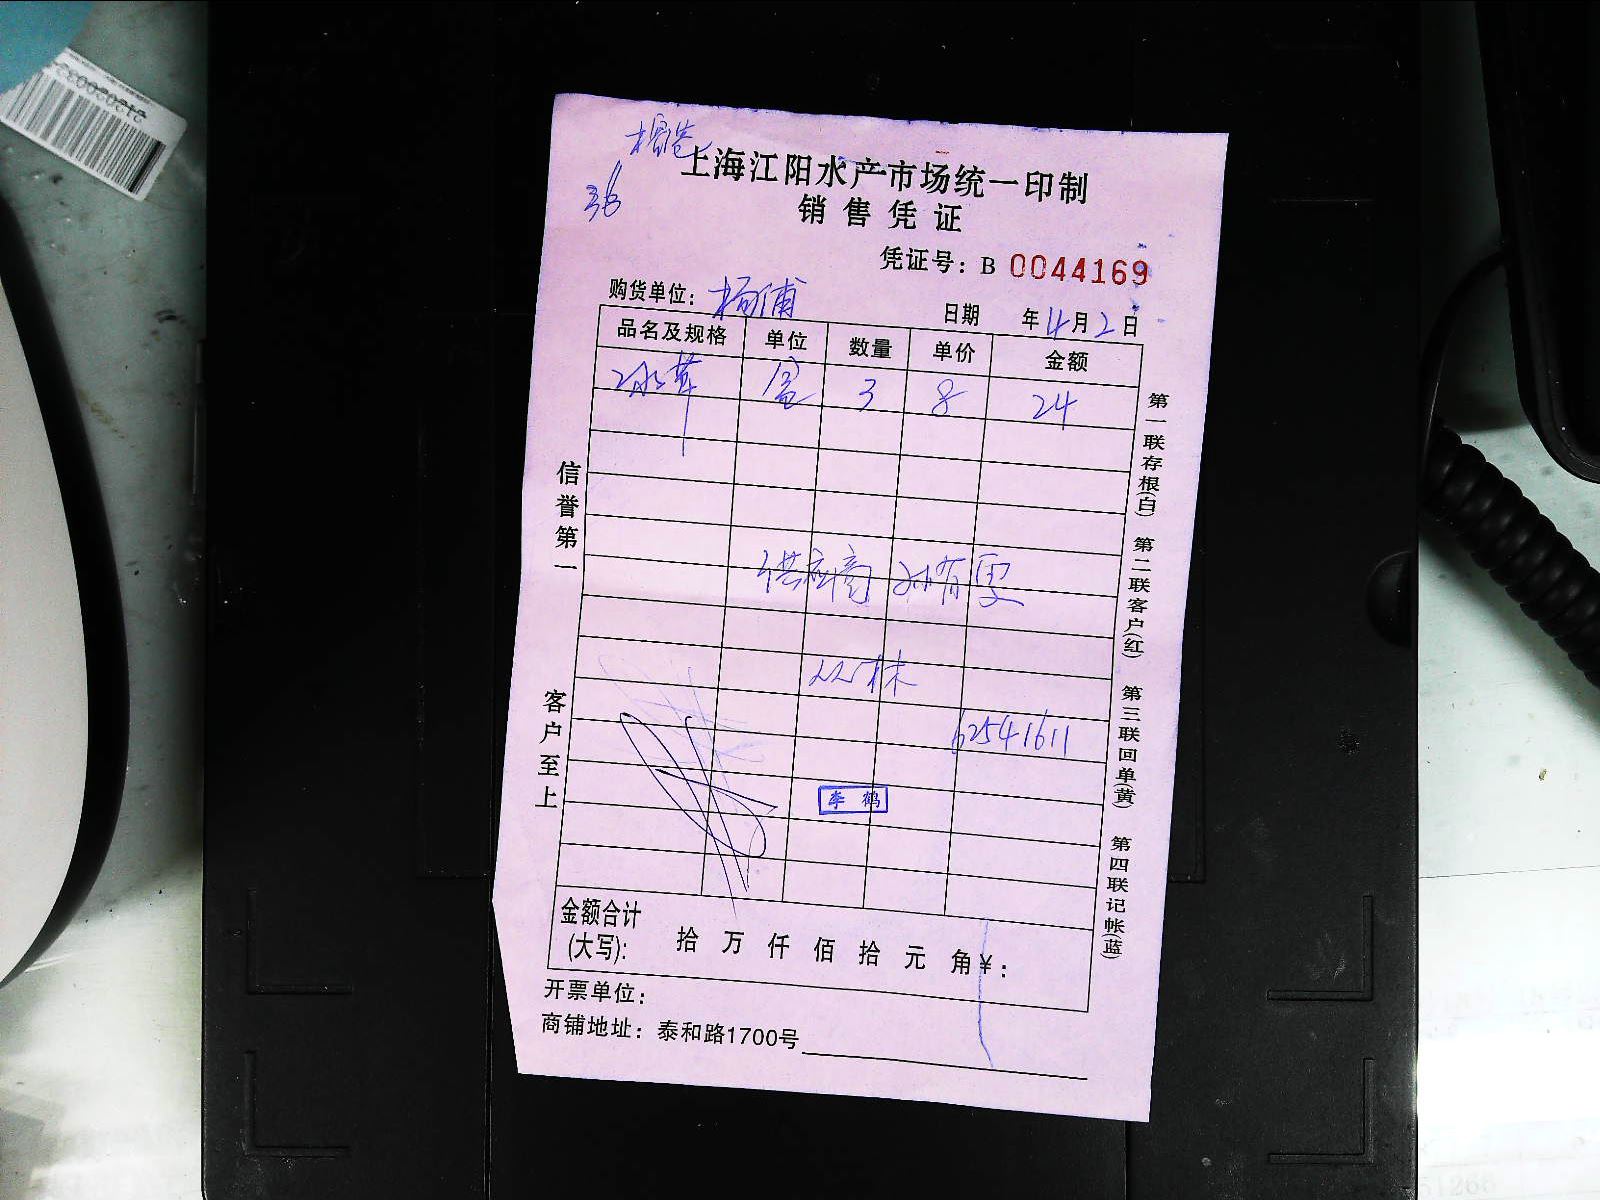 上海江阳水产市场统一印制
36
销售凭证
凭证号：B 0044169
购货单位：杨浦
日期 年4月2日
品名及规格 单位 数量 单价 金额
冰草 盒 3 8 24
供应商 孙育雯
从林
62541611
李鹤
金额合计(大写)： 拾 万 仟 佰 拾 元 角 ¥：
开票单位：
商铺地址：泰和路1700号
信誉第一
客户至上
第一联存根(白)
第二联客户(红)
第三联回单(黄)
第四联记帐(蓝)